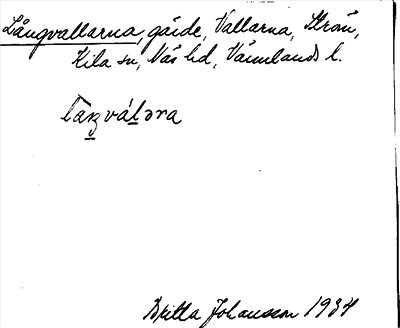 Långvallarna, gärde, Vallarna, Ström,
Kila sn, Näs hd, Värmlands l.
Britta Johansson 1934